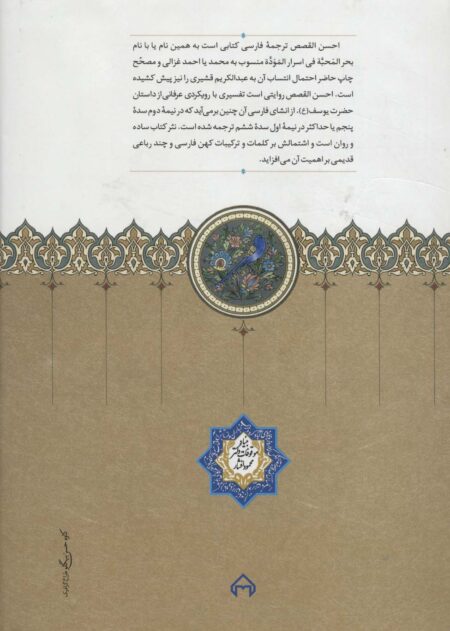 احسن القصص ترجمهٔ فارسی کتابی است به همین نام یا با نام
بحر المَحبَّة فی اسرار المَوَدَّة منسوب به محمد یا احمد غزالی و مصحّح
چاپ حاضر احتمال انتساب آن به عبدالکریم قشیری را نیز پیش کشیده
است. احسن القصص روایتی است تفسیری با رویکردی عرفانی از داستان
حضرت یوسف(ع). از انشای فارسی آن چنین برمی‌آید که در نیمهٔ دوم سدهٔ
پنجم یا حداکثر در نیمهٔ اول سدهٔ ششم ترجمه شده است. نثر کتاب ساده
و روان است و اشتمالش بر کلمات و ترکیبات کهن فارسی و چند رباعی
قدیمی بر اهمیت آن می‌افزاید.
بنیاد
موقوفات دکتر
محمود افشار